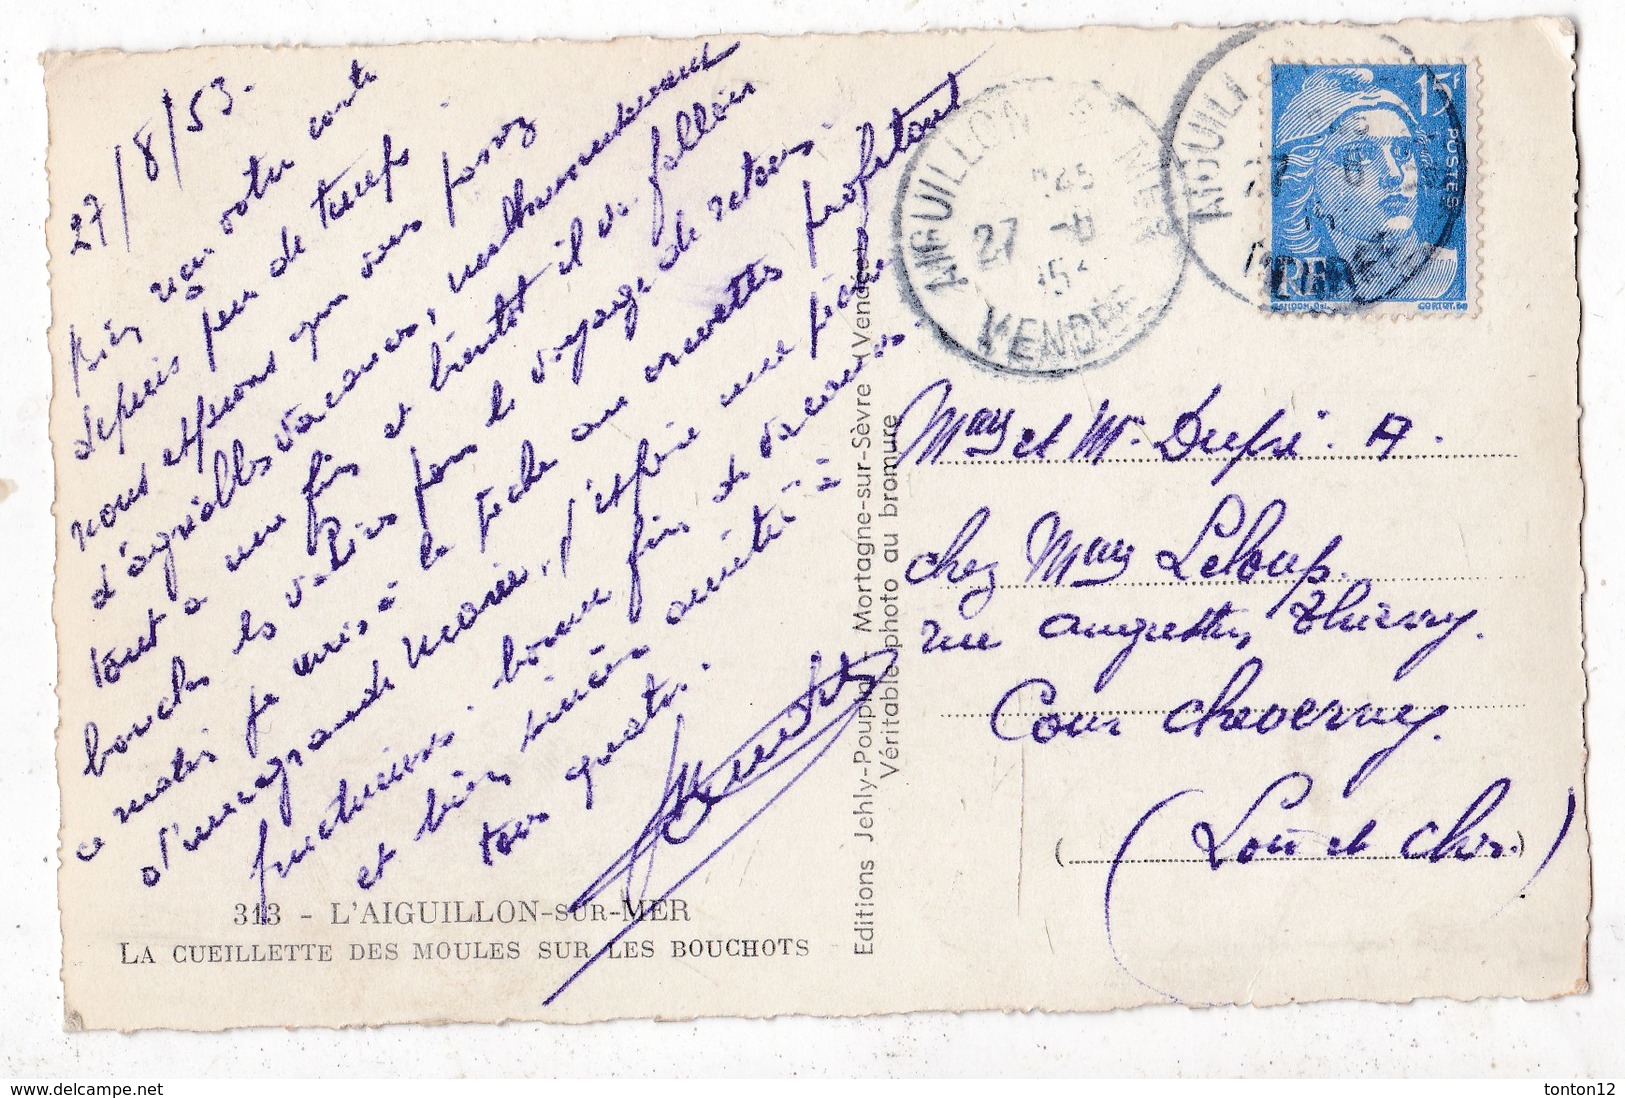 27/8/53.
Bien reçu votre carte
depuis peu de temps.
nous espérons que vous passez
d'agréables vacances, malheureusement
tout a une fin et bientôt il va falloir
boucler les valises pour le voyage de retour.
ce matin je suis à la pêche aux crevettes profitant
d'une grande marée, j'espère une pêche
fructueuse. bonne fin de vacances
et bien sincères amitiés à
tous quatre.
313 - L'AIGUILLON-SUR-MER
LA CUEILLETTE DES MOULES SUR LES BOUCHOTS
Editions Jehly-Poupin, Mortagne-sur-Sèvre (Vendée)
Véritable photo au bromure
AIGUILLON S MER
27 -8
VENDEE
AIGUILL
27 8
VENDEE
15F
POSTES
RF
GANDON
CORTOT
et Mr. Dupé. A.
chez Leloup.
rue augustin Thierry.
Cour cheverny.
(Loir et Cher.)
www.delcampe.net
tonton12